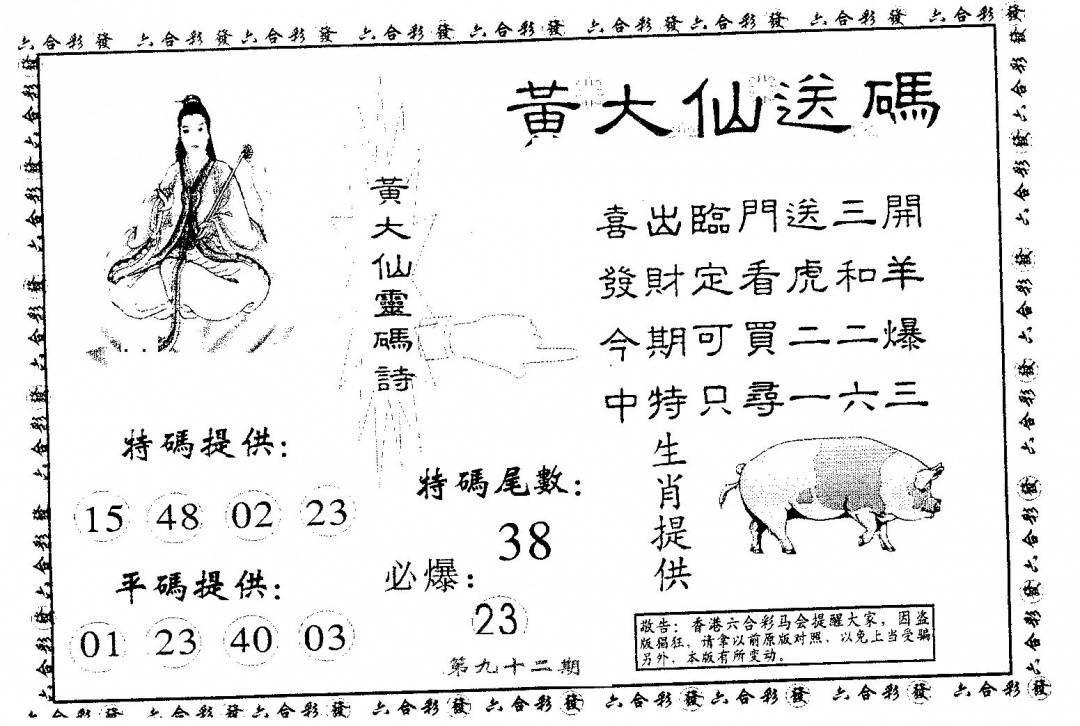 六合彩 發 六合彩 發 六合彩 發 六合彩 發 六合彩 發 六合彩 發 六合彩 發 六合彩 發 六合彩 發
黃大仙送碼
黃大仙靈碼詩
喜出臨門送三開
發財定看虎和羊
今期可買二二爆
中特只尋一六三
特碼提供：
15 48 02 23
平碼提供：
01 23 40 03
特碼尾數：
38
必爆：
23
第九十二期
生肖提供
敬告：香港六合彩马会提醒大家，因盗
版猖狂，请拿以前原版对照，以免上当受骗
另外，本版有所变动。
六合彩 發 六合彩 發 六合彩 發 六合彩 發 六合彩 發 六合彩 發 六合彩 發 六合彩 發 六合彩 發